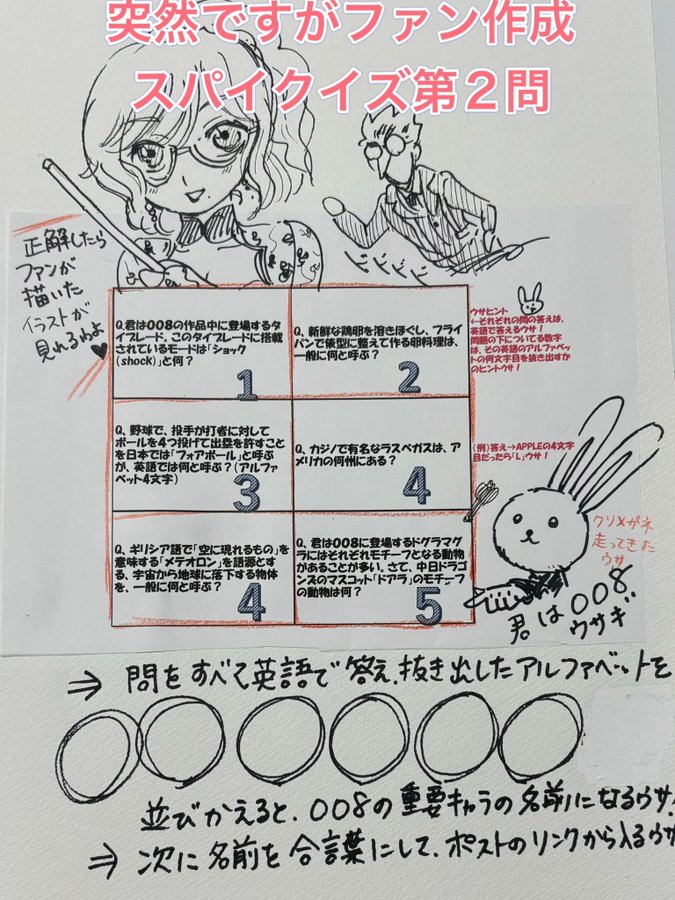 突然ですがファン作成
スパイクイズ第2問
正解したら
ファンが
描いた
イラストが
見れるわよ
♥
Q.君は008の作品中に登場するタ
イプレード。このタイプレードに搭載
されているモードは「ショック
(shock)」と何?
1
Q、新鮮な鶏卵を溶きほぐし、フライ
パンで俵型に整えて作る卵料理は、
一般に何と呼ぶ?
2
ウサヒント
←それぞれの問の答えは、
英語で答えるウサ!
問題の下についてる数字
は、その英語のアルファベッ
トの何文字目を抜き出すか
のヒントウサ!
Q、野球で、投手が打者に対して
ボールを4つ投げて出塁を許すこと
を日本では「フォアボール」と呼ぶ
が、英語では何と呼ぶ?(アルファ
ベット4文字)
3
Q、カジノで有名なラスベガスは、ア
メリカの何州にある?
4
(例)答え→APPLEの4文字
目だったら「L」ウサ!
Q、ギリシア語で「空に現れるもの」を
意味する「メテオロン」を語源とす
る、宇宙から地球に落下する物体
を、一般に何と呼ぶ?
4
Q、君は008に登場するドグラマグ
ラにはそれぞれモチーフとなる動物
があることが多い。さて、中日ドラゴ
ンズのマスコット「ドアラ」のモチーフ
の動物は何?
5
クソメガネ
走ってきた
ウサ
君は008
ウサギ
⇒ 問をすべて英語で答え、抜き出したアルファベットを
並びかえると、008の重要キャラの名前になるウサ!
⇒ 次に名前を合言葉にして、ポストのリンクから入るウサ